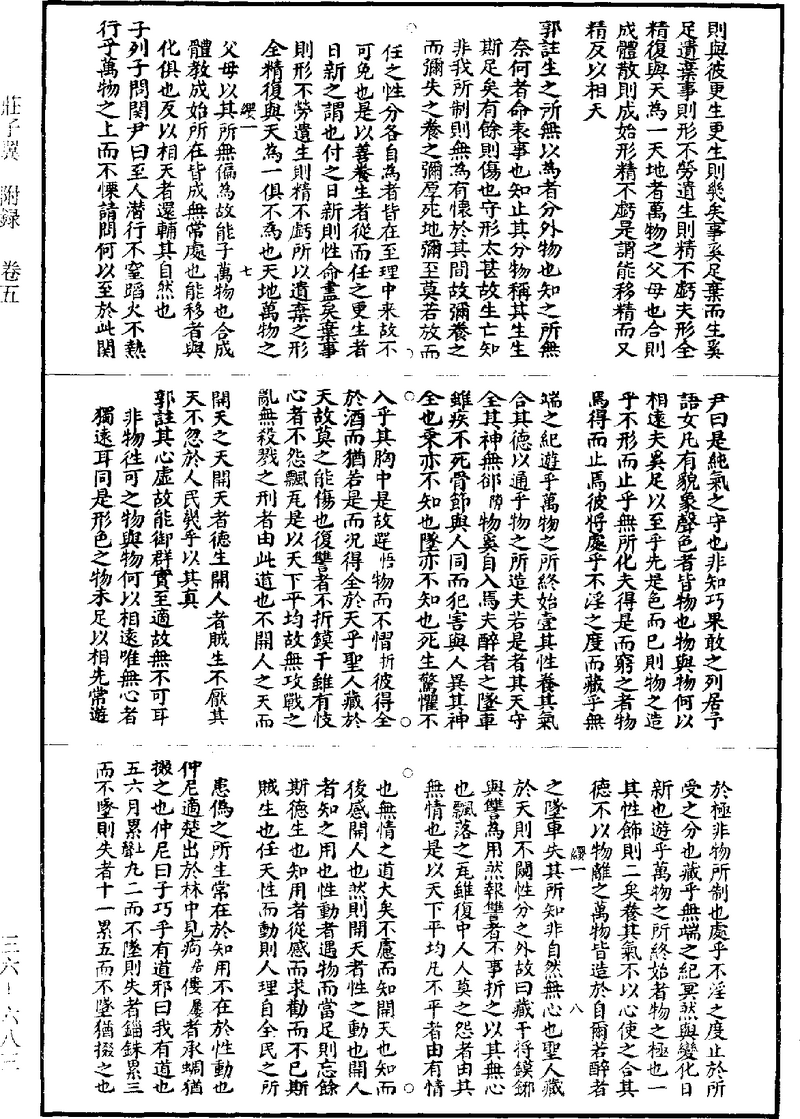 則與彼更生更生則幾矣事奚足棄而生奚
足遺棄事則形不勞遺生則精不虧夫形全
精復與天為一天地者萬物之父母也合則
成體散則成始形精不虧是謂能移精而又
精反以相天
郭註生之所無以為者分外物也知之所無
奈何者命表事也知止其分物稱其生生
斯足矣有餘則傷也守形太甚故生亡知
非我所制則無為有懷於其間故彌養之
而彌失之養之彌厚死地彌至莫若放而
任之性分各自為者皆在至理中來故不
可免也是以善養生者從而任之更生者
日新之謂也付之日新則性命盡矣棄事
則形不勞遺生則精不虧所以遺棄之形
全精復與天為一俱不為也天地萬物之
纓一 七
父母以其所無偏為故能子萬物也合成
體教成始所在皆成無常處也能移者與
化俱也反以相天者還輔其自然也
子列子問關尹曰至人潛行不窒蹈火不熱
行乎萬物之上而不慄請問何以至於此關
尹曰是純氣之守也非知巧果敢之列居予
語女凡有貌象聲色者皆物也物與物何以
相遠夫奚足以至乎先是色而已則物之造
乎不形而止乎無所化夫得是而窮之者物
焉得而止焉彼將處乎不淫之度而藏乎無
端之紀遊乎萬物之所終始壹其性養其氣
合其德以通乎物之所造夫若是者其天守
全其神無郤隙物奚自入焉夫醉者之墜車
雖疾不死骨節與人同而犯害與人異其神
全也乘亦不知也墜亦不知也死生驚懼不
入乎其胸中是故遻悟物而不慴折彼得全
於酒而猶若是而況得全於天乎聖人藏於
天故莫之能傷也復讐者不折鏌干雖有忮
心者不怨飄瓦是以天下平均故無攻戰之
亂無殺戮之刑者由此道也不開人之天而
開天之天開天者德生開人者賊生不厭其
天不忽於人民幾乎以其真
郭註其心虛故能御群實至適故無不可耳
非物徃可之物與物何以相遠唯無心者
獨遠耳同是形色之物未足以相先常遊
於極非物所制也處乎不淫之度止於所
受之分也藏乎無端之紀冥然與變化日
新也遊乎萬物之所終始者物之極也一
其性飾則二矣養其氣不以心使之合其
德不以物離之萬物皆造於自爾若醉者
纓一 八
之墜車失其所知非自然無心也聖人藏
於天則不闚性分之外故曰藏干將鏌鋣
與讐為用然報讐者不事折之以其無心
也飄落之瓦雖復中人人莫之怨者由其
無情也是以天下平均凡不平者由有情
也無情之道大矣不慮而知開天也知而
後感開人也然則開天者性之動也開人
者知之用也性動者遇物而當足則忘餘
斯德生也知用者從感而求勸而不已斯
賊生也任天性而動則人理自全民之所
患偽之所生常在於知用不在於性動也
仲尼適楚出於林中見痀居僂屢者承蜩猶
掇之也仲尼曰子巧乎有道邪曰我有道也
五六月累上聲九二而不墜則失者錙銖累三
而不墜則失者十一累五而不墜猶掇之也
莊子翼 附録 卷五
三六—六八三